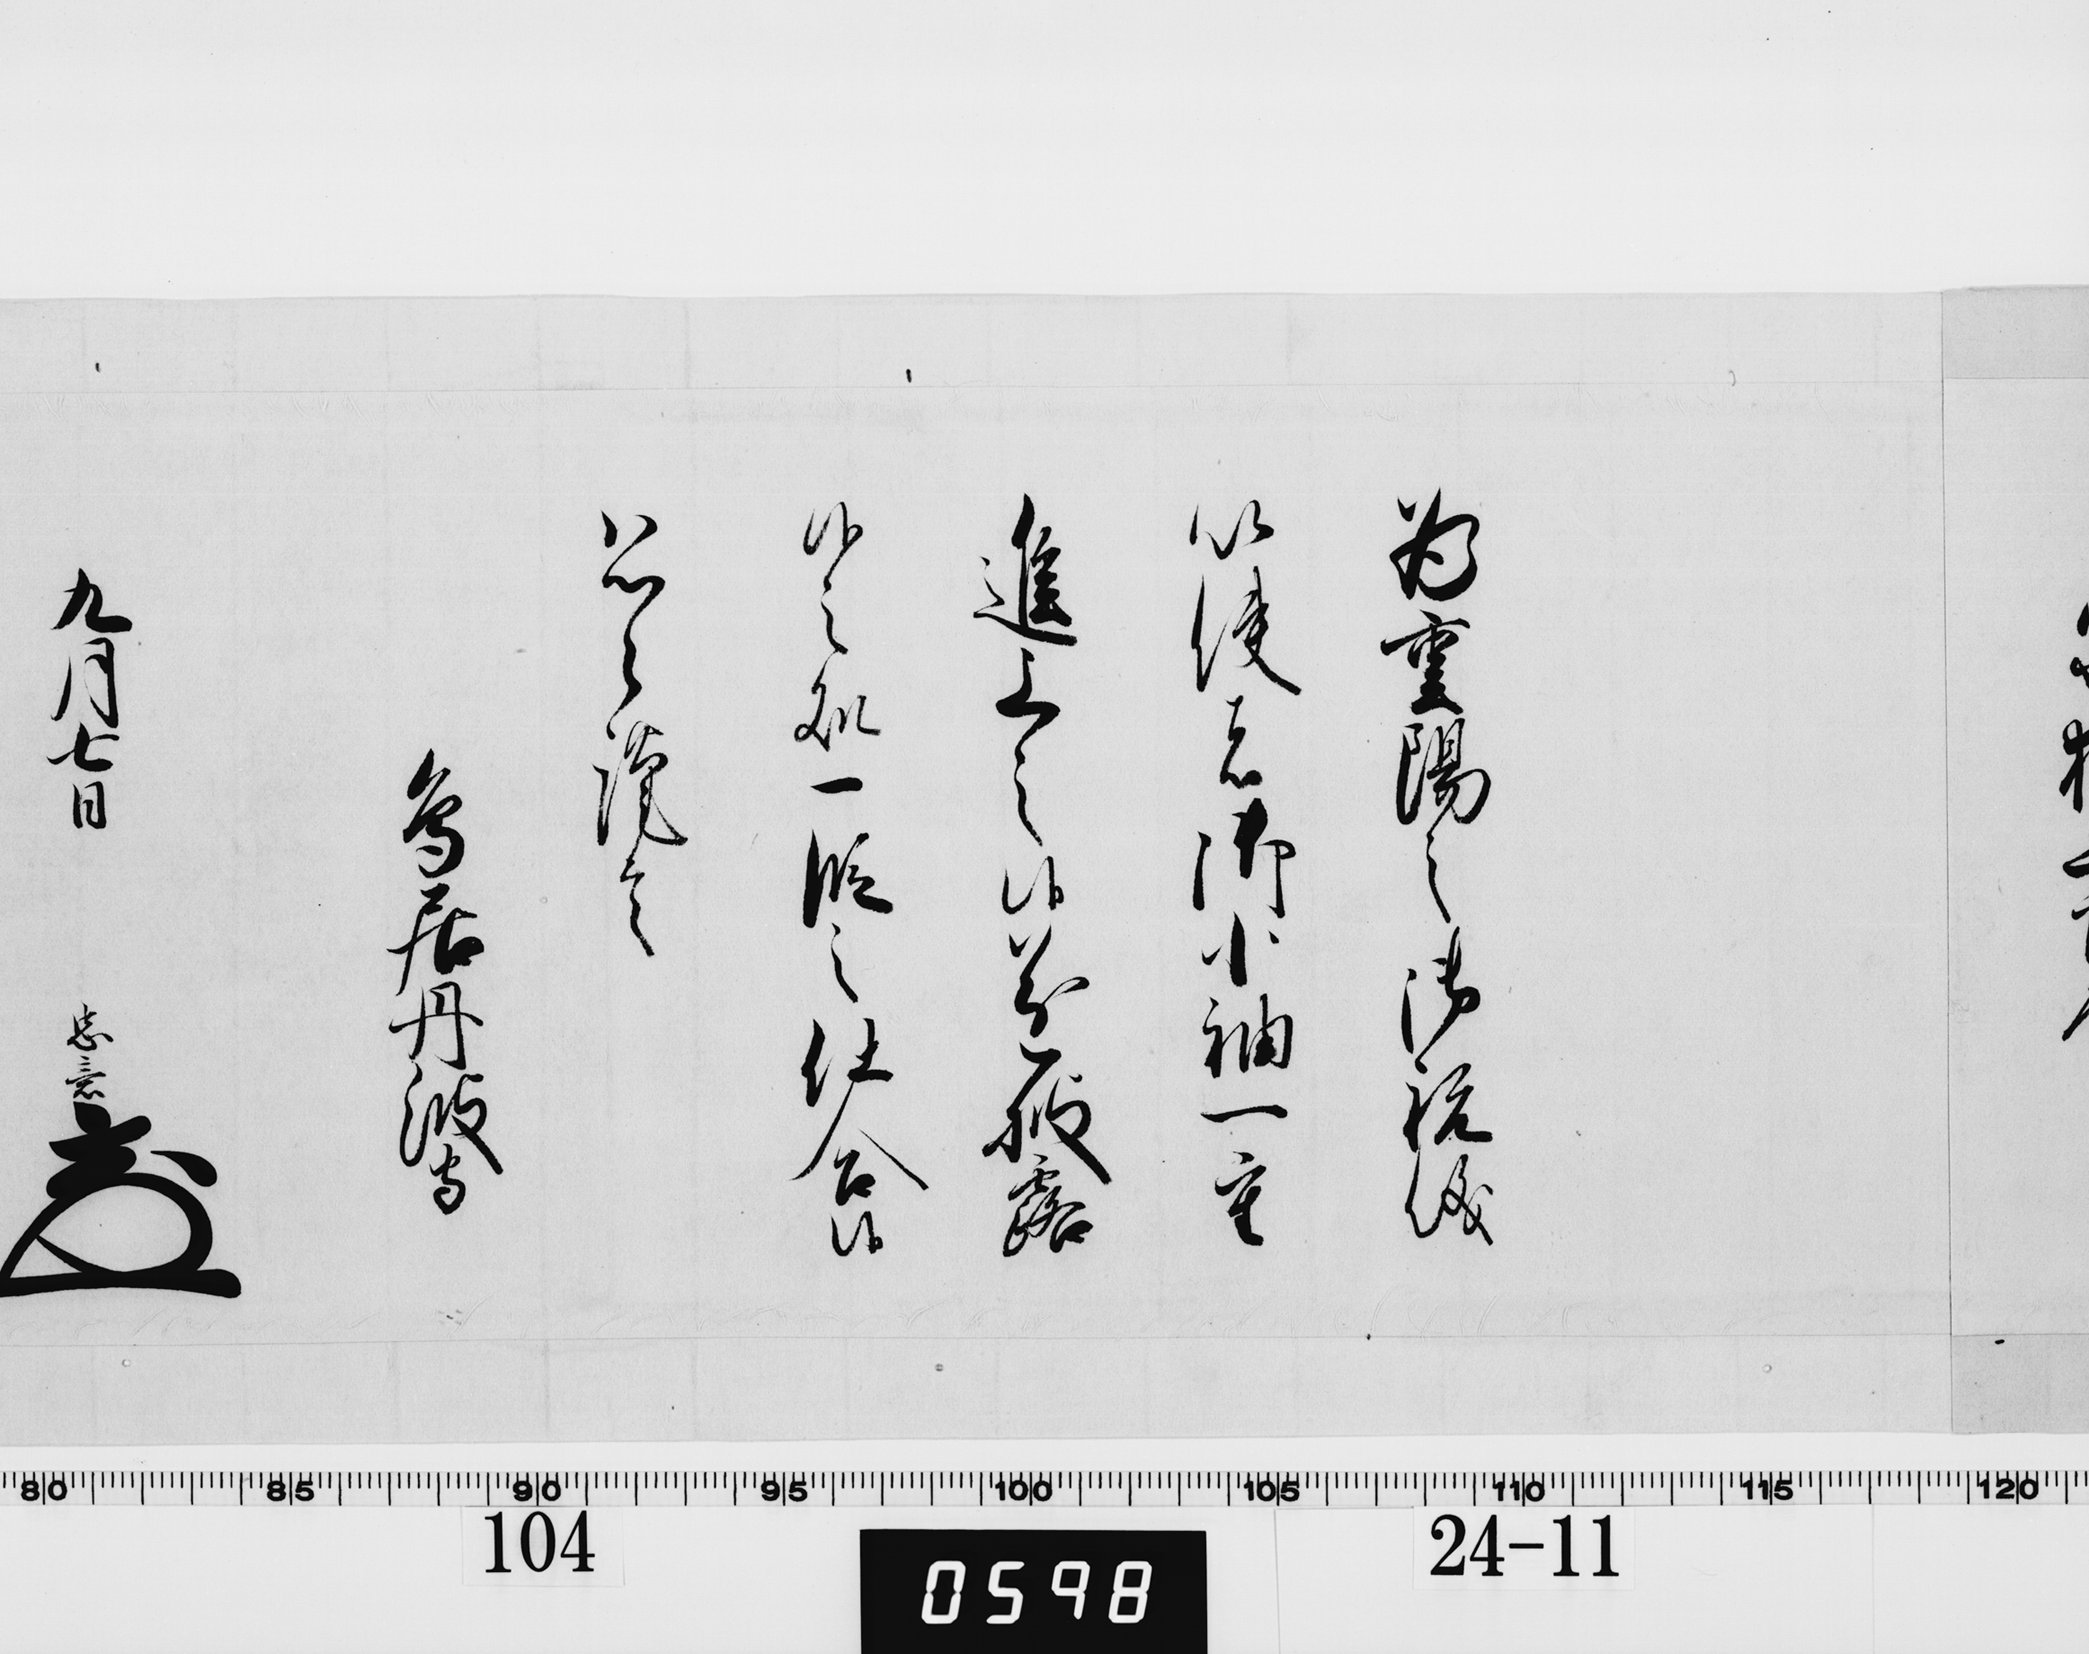 為重陽之御祝儀
以使者御小袖一重
進上之候並披露
候之処一段之仕合候
恐々謹言
鳥居丹波守
九月七日
忠意
80 85 90 95 100 105 110 115 120
104
0598
24-11